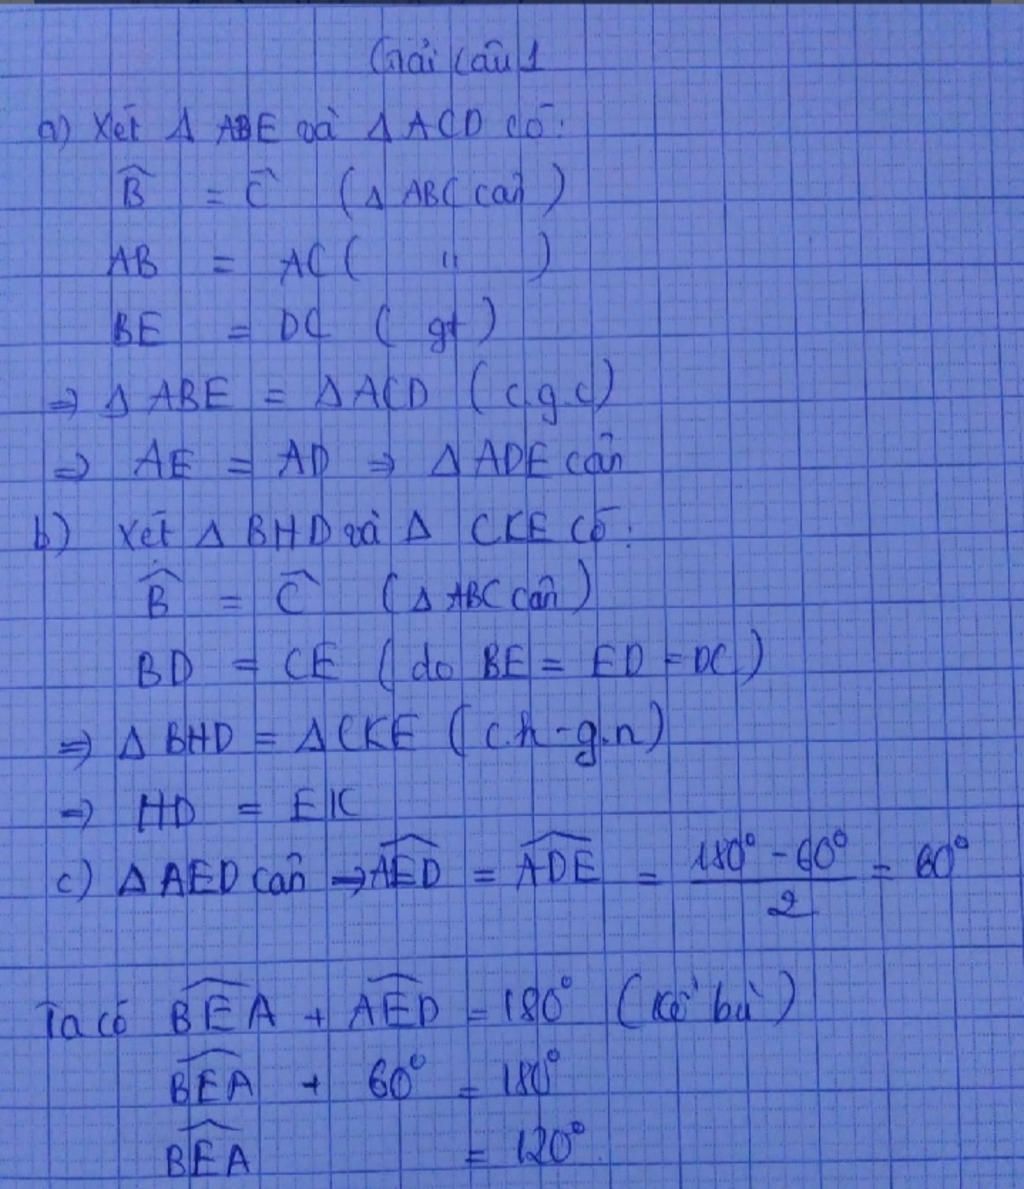 Giải câu 1
a) Xét Δ ABE và Δ ACD có:
B̂ = Ĉ (Δ ABC cân)
AB = AC ( " )
BE = DC ( gt )
⇒ Δ ABE = Δ ACD (c.g.c)
⇒ AE = AD ⇒ Δ ADE cân
b) Xét Δ BHD và Δ CKE có:
B̂ = Ĉ (Δ ABC cân)
BD = CE ( do BE = ED = DC )
⇒ Δ BHD = Δ CKE ( c.h - g.n )
⇒ HD = EK
c) Δ AED cân ⇒ \widehat{AED} = \widehat{ADE} = \frac{180° - 60°}{2} = 60°
Ta có \widehat{BEA} + \widehat{AED} = 180° (kề bù)
\widehat{BEA} + 60° = 180°
\widehat{BEA} = 120°